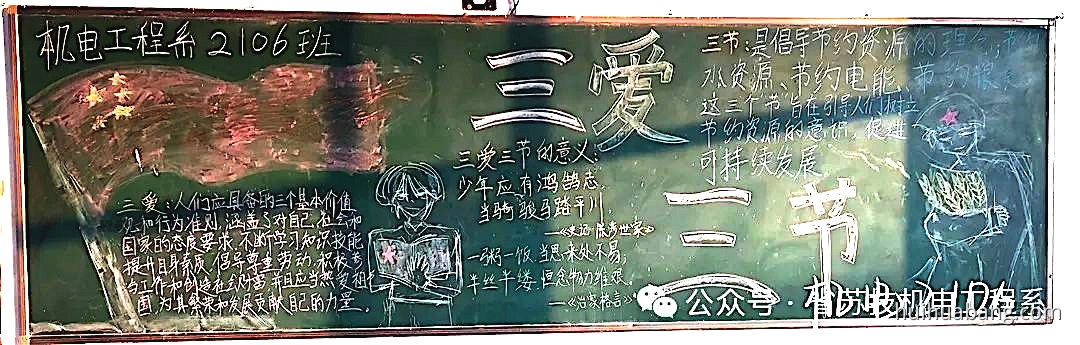 机电工程系2106班
三爱
三节:是倡导节约资源的理念,节约
水资源、节约电能、节约粮
这三个节旨在引导人们树立
节约资源的意识,促进
可持续发展
三节
三爱三节的意义:
少年应有鸿鹄志,
当骑骏马踏平川。
一粥一饭,当思来处不易;
半丝半缕,恒念物力维艰。
——《治家格言》
三爱:人们应具备的三个基本价值
观和行为准则,涵盖了对自己,社会和
国家的态度要求,不断学习知识技能
提升自身素质,倡导尊重劳动,积极参
与工作和创造社会财富,并且应当热爱祖
国,为其繁荣和发展贡献自己的力量。
公众号·
机电工程系
huihuabang.com